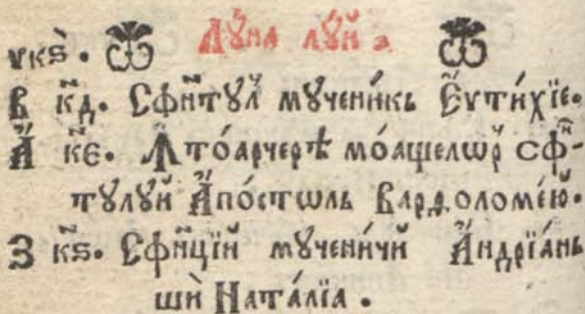 укѕ҃. Лꙋна лꙋй з
В к҃д. Сфи҃тꙋл мꙋчени́кь Е҆ѵти́хїе.
А҆ к҃є. Ꙟто́арчерѣ мо́ащелѡр сфн҃-
тꙋлꙋй А҆по́стѡль Вардоломе́ю.
З к҃ѕ. Сфи҃цїй мꙋчени́чи А҆ндрїа́нь
шѝ Ната́лїа.